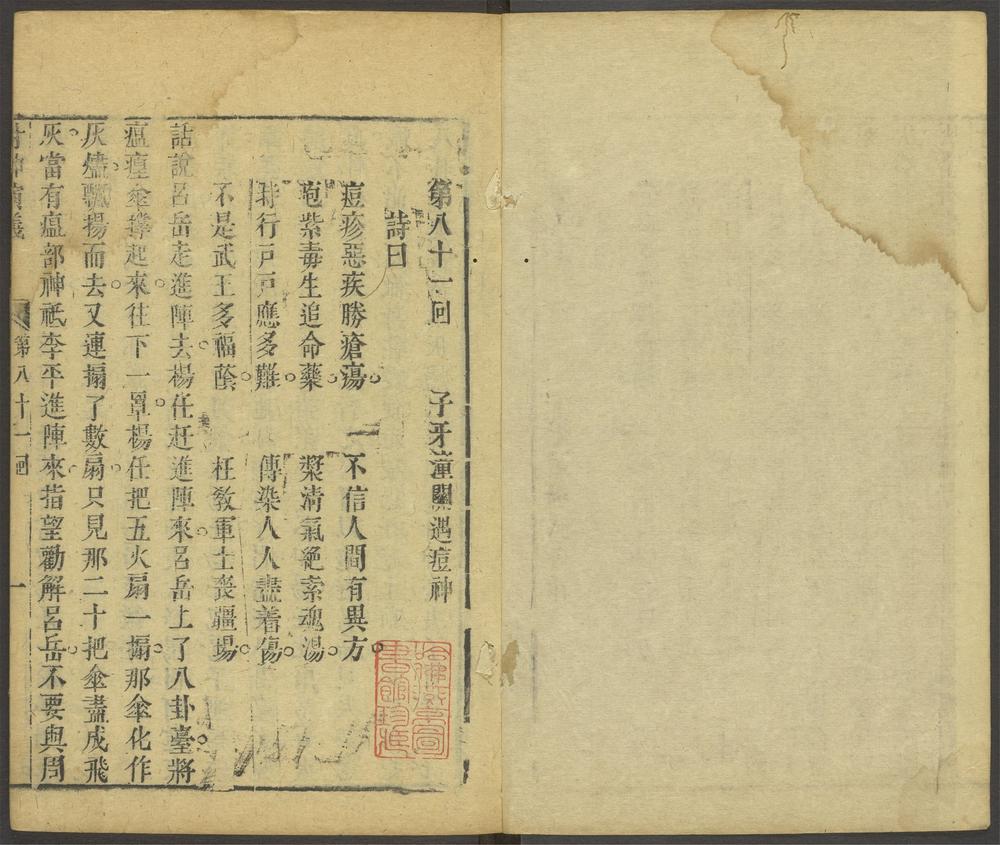 第八十一回 子牙潼關遇痘神
詩曰
痘疹惡疾勝瘡瘍。不信人間有異方。
疱紫毒生追命藥。漿清氣絕索魂湯。
時行戸戸應多難。傳染人人盡着傷。
不是武王多福蔭。枉敎軍士喪疆場。
話說呂岳走進陣去。楊任赶進陣來。呂岳上了八卦臺。將
瘟𤹠傘撑起來。往下一罩。楊任把五火扇一搧。那傘化作
灰燼。飄揚而去。又連搧了數扇。只見那二十把傘盡成飛
灰。當有瘟部神祇李平進陣來。指望勸解呂岳。不要與周
封神演義 第八十一回 一
哈佛燕京圖
書館珍藏